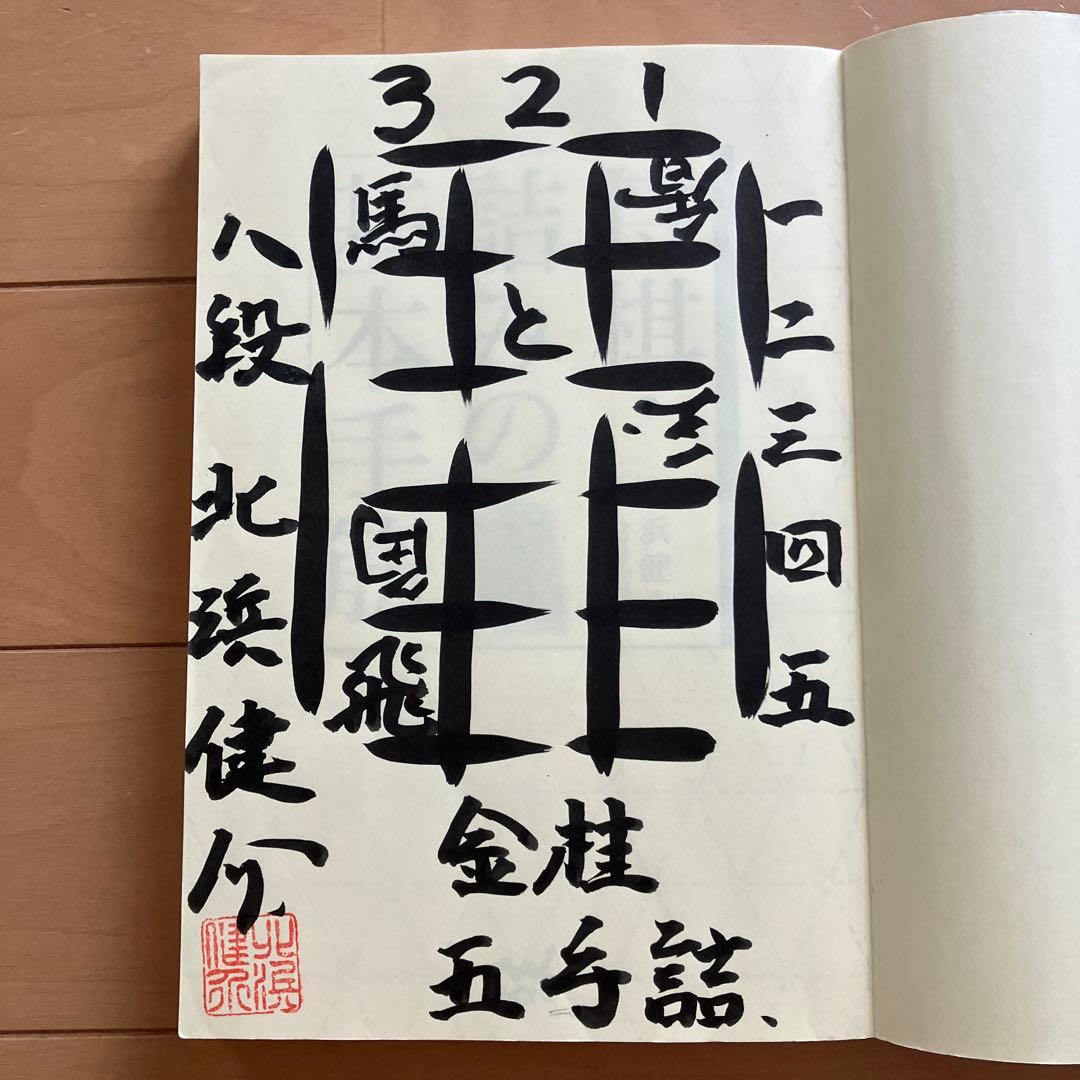 3 2 1
馬 香 一
と 二
玉 三
四
飛 五
金桂
五手詰、
八段 北浜健介
北浜健介